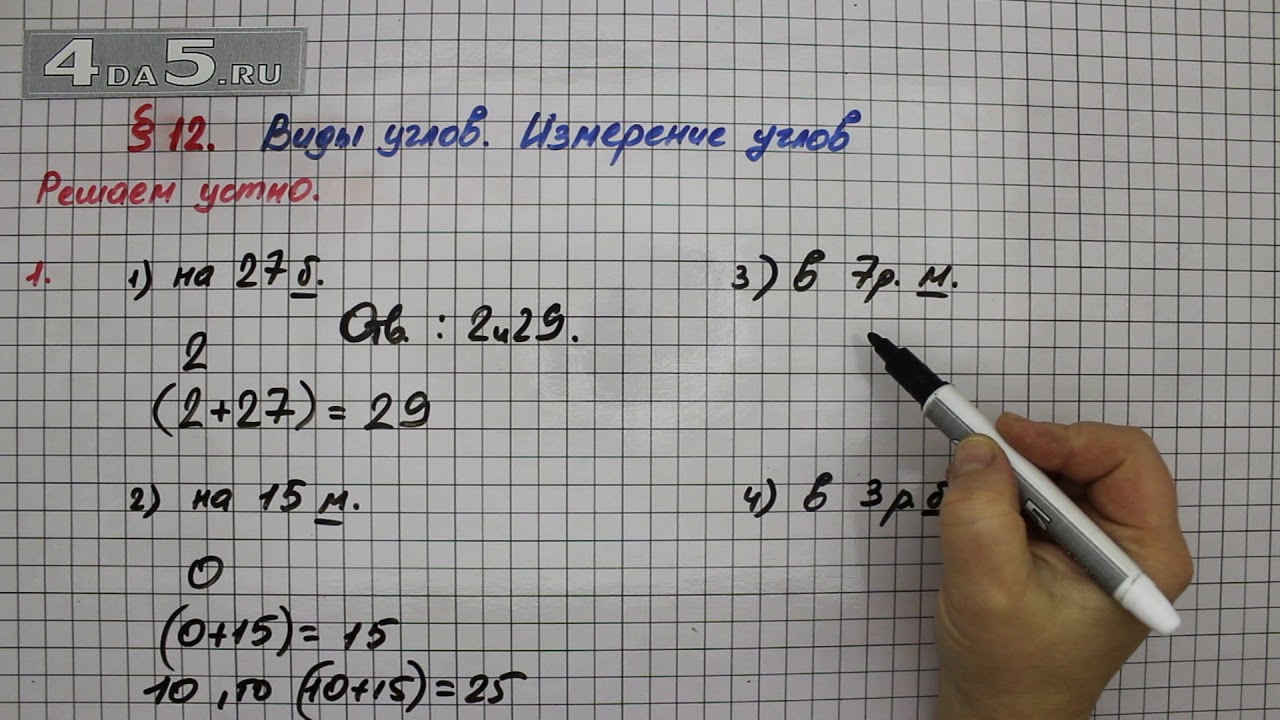 4DA5.RU
§ 12. Виды углов. Измерение углов
Решаем устно.
1. 1) на 27 б.
Отв. : 2 и 29.
2
(2+27) = 29
2) на 15 м.
0
(0+15) = 15
10, то (10+15) = 25
3) в 7 р. м.
4) в 3 р. б